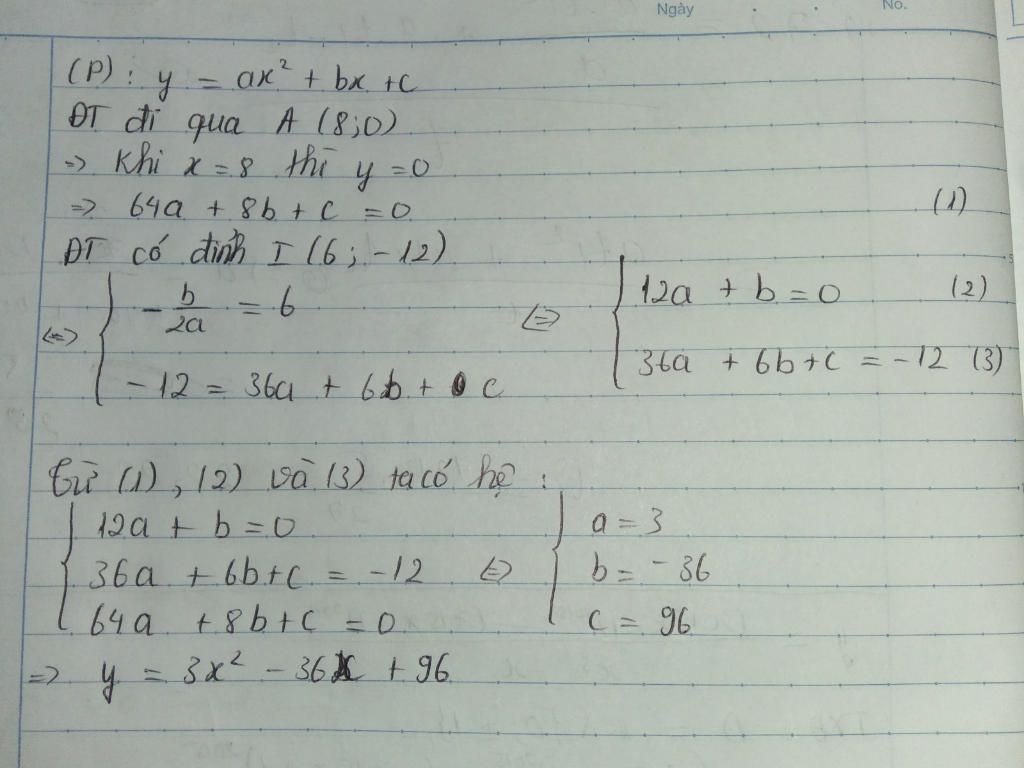 Ngày . . No.
(P): y = ax² + bx + c
ĐT đi qua A (8;0)
=> Khi x = 8 thì y = 0
=> 64a + 8b + c = 0 (1)
ĐT có đỉnh I (6; -12)
<=> { -b/2a = 6 <=> { 12a + b = 0 (2)
-12 = 36a + 6b + c 36a + 6b + c = -12 (3)
Từ (1), (2) và (3) ta có hệ:
{ 12a + b = 0 { a = 3
36a + 6b + c = -12 <=> b = -36
64a + 8b + c = 0 c = 96
=> y = 3x² - 36x + 96